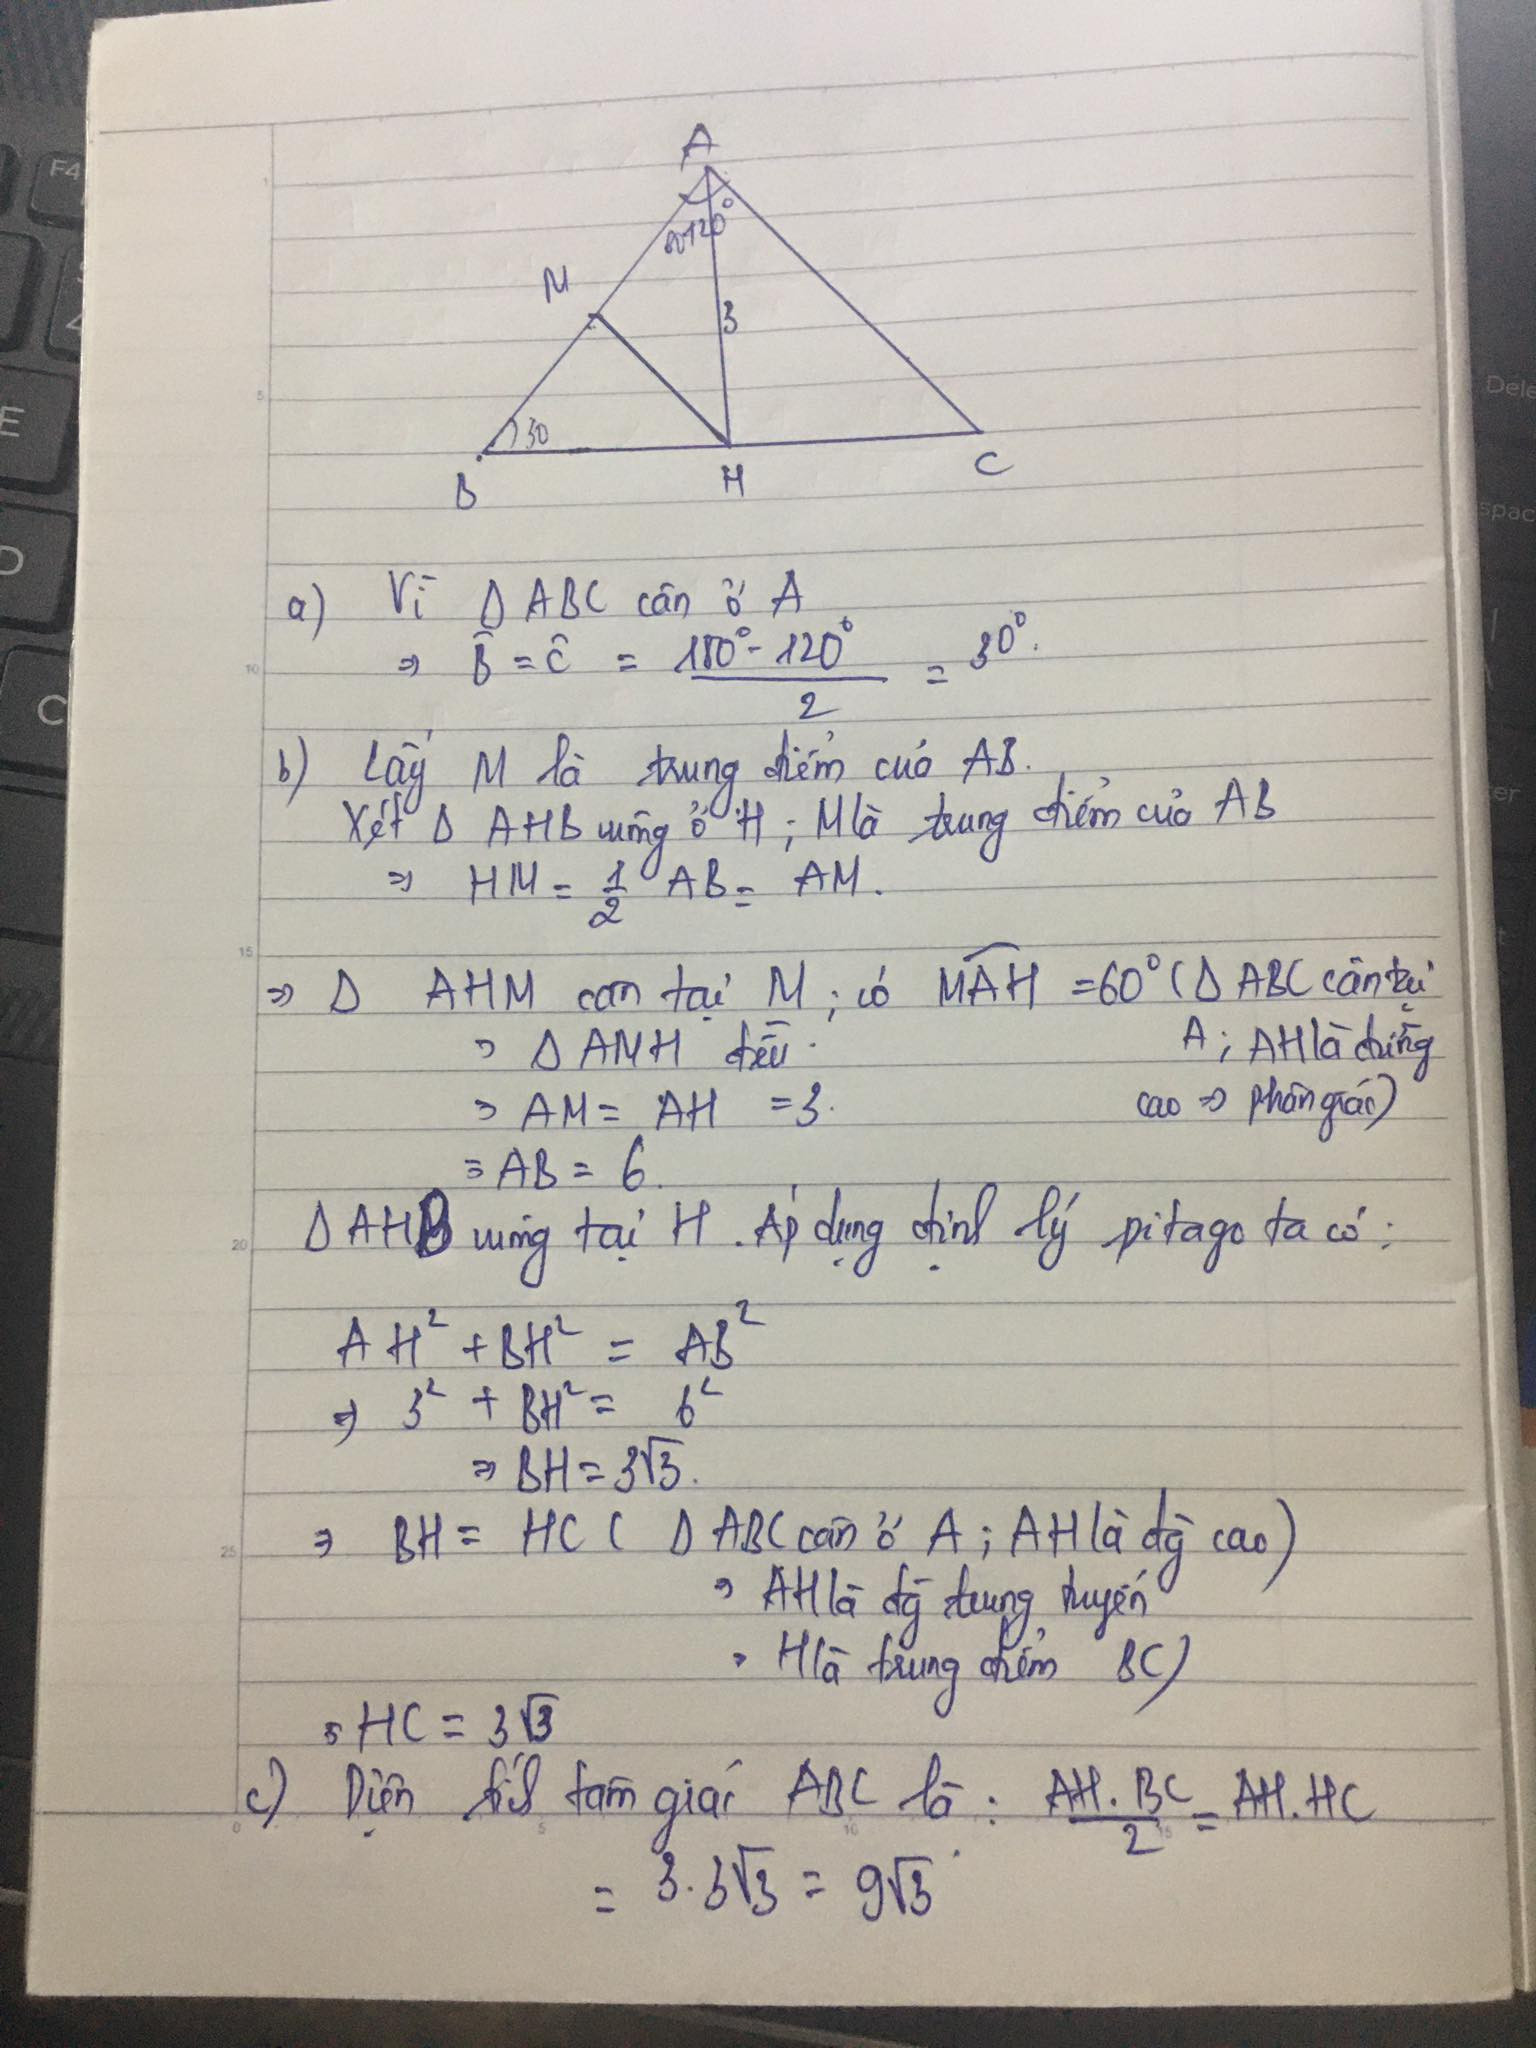 A
120°
M
3
30
B
H
C
a) Vì Δ ABC cân ở A
⇒ B̂ = Ĉ = (180° - 120°)/2 = 30°.
b) Lấy M là trung điểm của AB.
Xét Δ AHB vuông ở H ; M là trung điểm của AB
⇒ HM = 1/2 AB = AM.
⇒ Δ AHM cân tại M ; có MAH = 60° (Δ ABC cân tại
⇒ Δ AMH đều. A ; AH là đường
⇒ AM = AH = 3. cao ⇒ phân giác)
⇒ AB = 6.
Δ AHB vuông tại H . Áp dụng định lý pitago ta có :
AH² + BH² = AB²
⇒ 3² + BH² = 6²
⇒ BH = 3√3.
⇒ BH = HC ( Δ ABC cân ở A ; AH là đg cao)
⇒ AH là đg trung tuyến
⇒ H là trung điểm BC)
⇒ HC = 3√3
c) Diện tích tam giác ABC là : AH.BC/2 = AH.HC
= 3.3√3 = 9√3
F4
E
D
C
Dele
spac
1
5
10
15
20
25
0
5
10
15